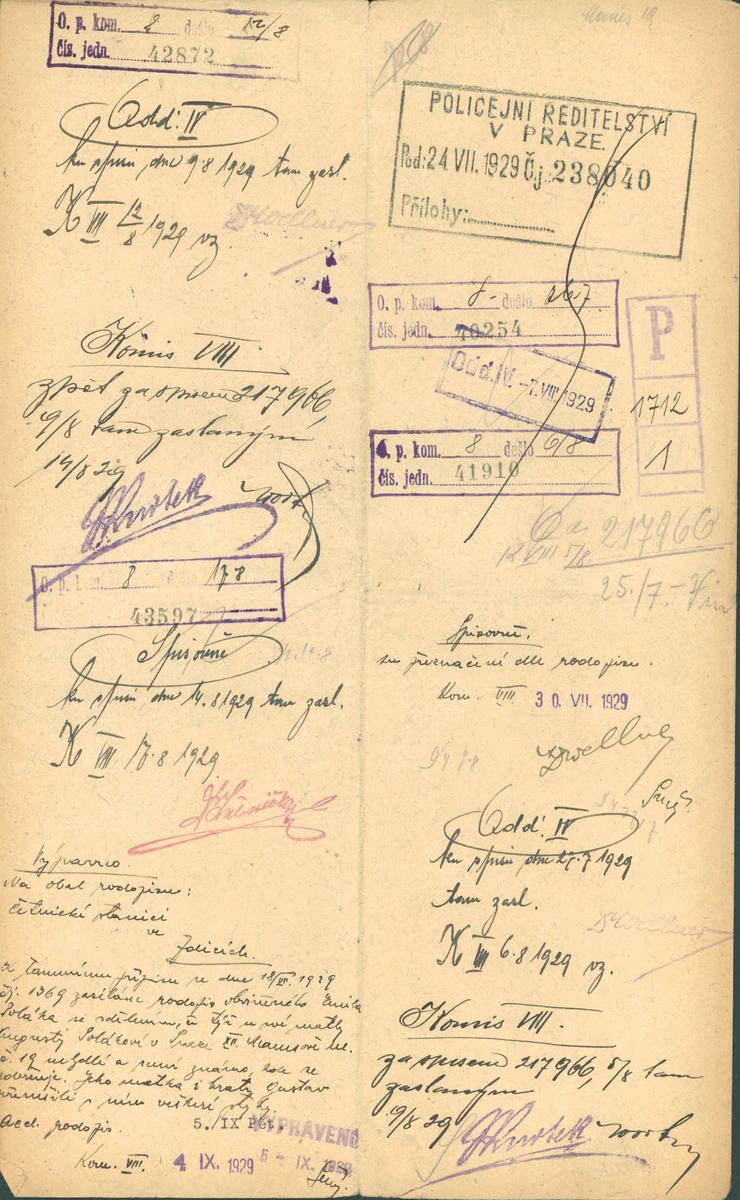 O. p. kom. 8 došlo 12/8
čís. jedn. 42872
Odd. IV
ku spisu dne 9.8 1929 tam zasl.
K VIII 12/8 1929 vz
Komis VIII
zpět za spisem 217966,
9/8 tam zaslaným
14/8 29
O. p. kom. 8 došlo 17.8
43597
Spisovně
ku spisu dne 14.8 1929 tam zasl.
K VIII 17.8 1929
Výpravno.
Na obal rodopisu:
četnické stanici
ve
Zdicích.
K tamnímu přípisu ze dne 18/VII. 1929
čj. 1369 zasíláme rodopis obviněného Emila
Poláka se sdělením, že týž u své matky
Augusty Polákové v Praze XII. Mánesově ul.
č. 19 nebydlí a není známo, kde se
zdržuje. Jeho matka i bratr Gustav
přerušili s ním veškeré styky.
Accl. rodopis.
5. IX Pet.
VYPRAVENO
Kom. VIII. 4 IX. 1929 5 - IX. 1929
POLICEJNÍ ŘEDITELSTVÍ
V PRAZE.
Pod: 24 VII. 1929 Čj. 238040
Přílohy:
O. p. kom. 8 - došlo 26.7
čís. jedn. 40254
P
1712
1
Odd. IV. -7. VIII. 1929
O. p. kom. 8 došlo 6/8
čís. jedn. 41910
217966
25/7.-
Spisovně.
ku přeznačení dle rodopisu.
Kom. VIII 30. VII. 1929
Odd. IV
ku spisu dne 27.7 1929
tam zasl.
K VIII 6.8 1929 vz.
Komis VIII.
za spisem 217966, 5/8 tam
zaslaným
9/8 29